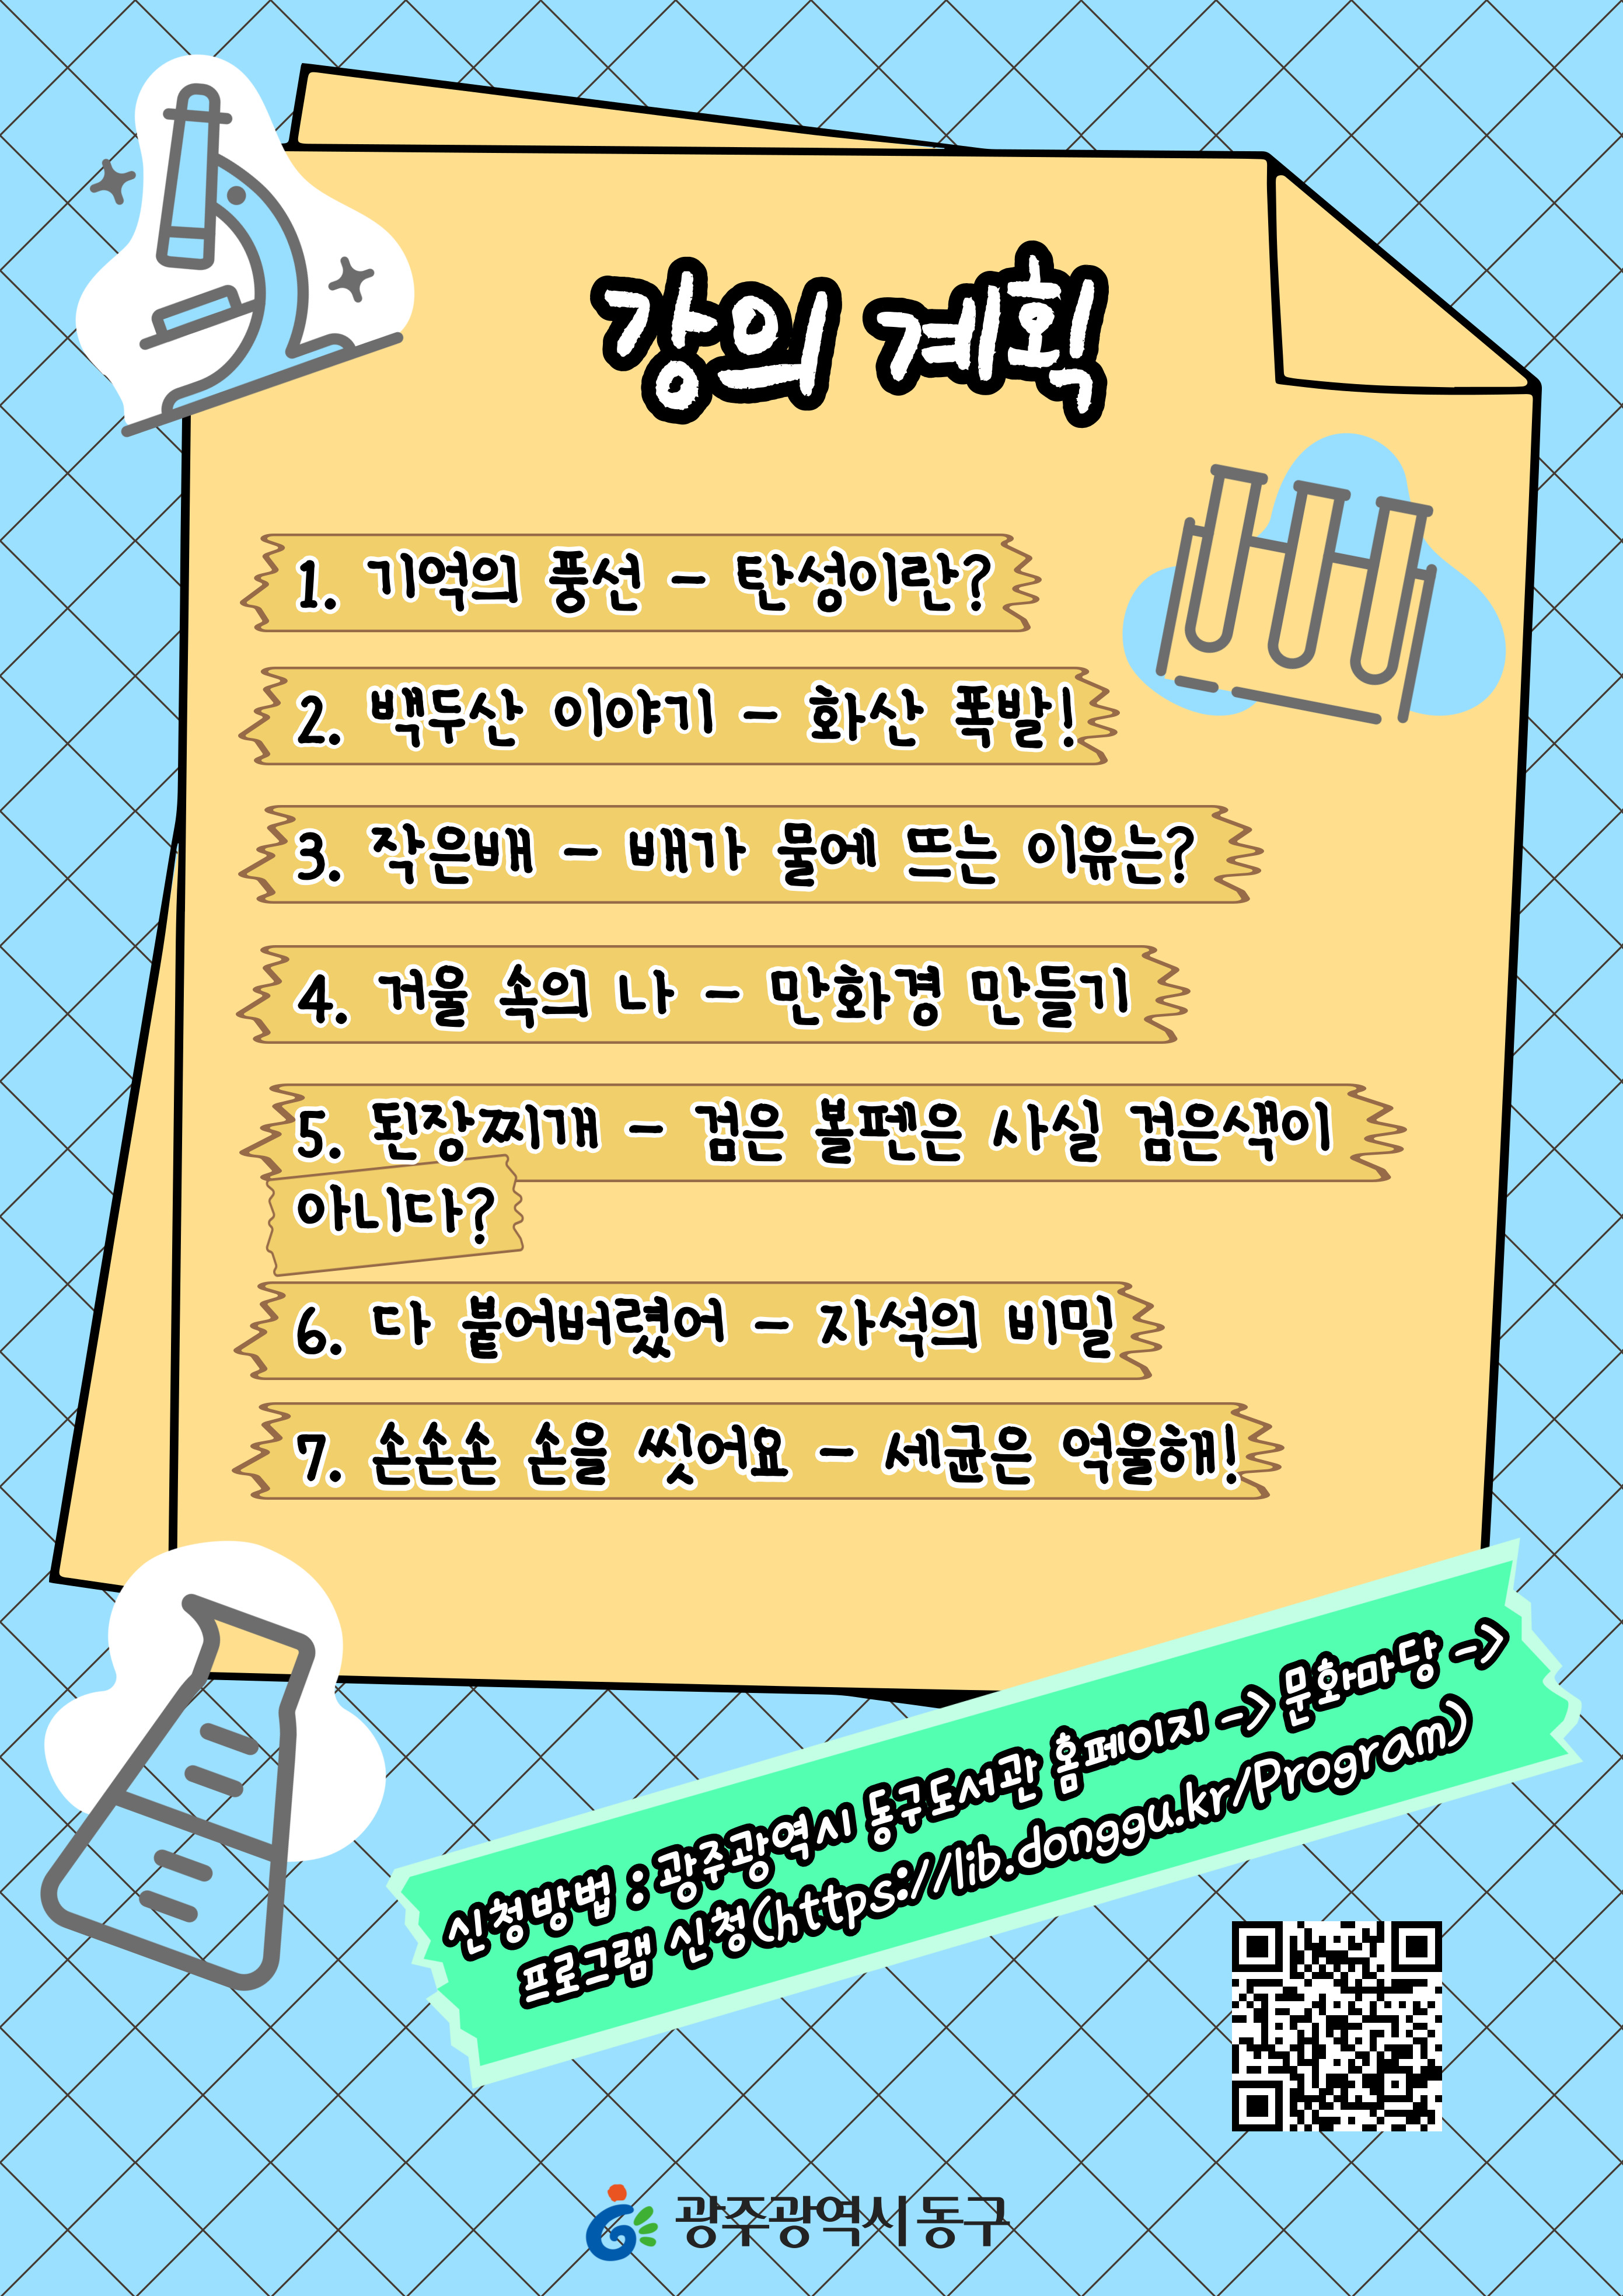 강의 계획
1. 기억의 풍선 - 탄성이란?
2. 백두산 이야기 - 화산 폭발!
3. 작은배 - 배가 물에 뜨는 이유는?
4. 거울 속의 나 - 만화경 만들기
5. 된장찌개 - 검은 볼펜은 사실 검은색이
아니다?
6. 다 붙어버렸어 - 자석의 비밀
7. 손손손 손을 씻어요 - 세균은 억울해!
신청방법 : 광주광역시 동구도서관 홈페이지 -> 문화마당 ->
프로그램 신청(https://lib.donggu.kr/Program)
광주광역시 동구